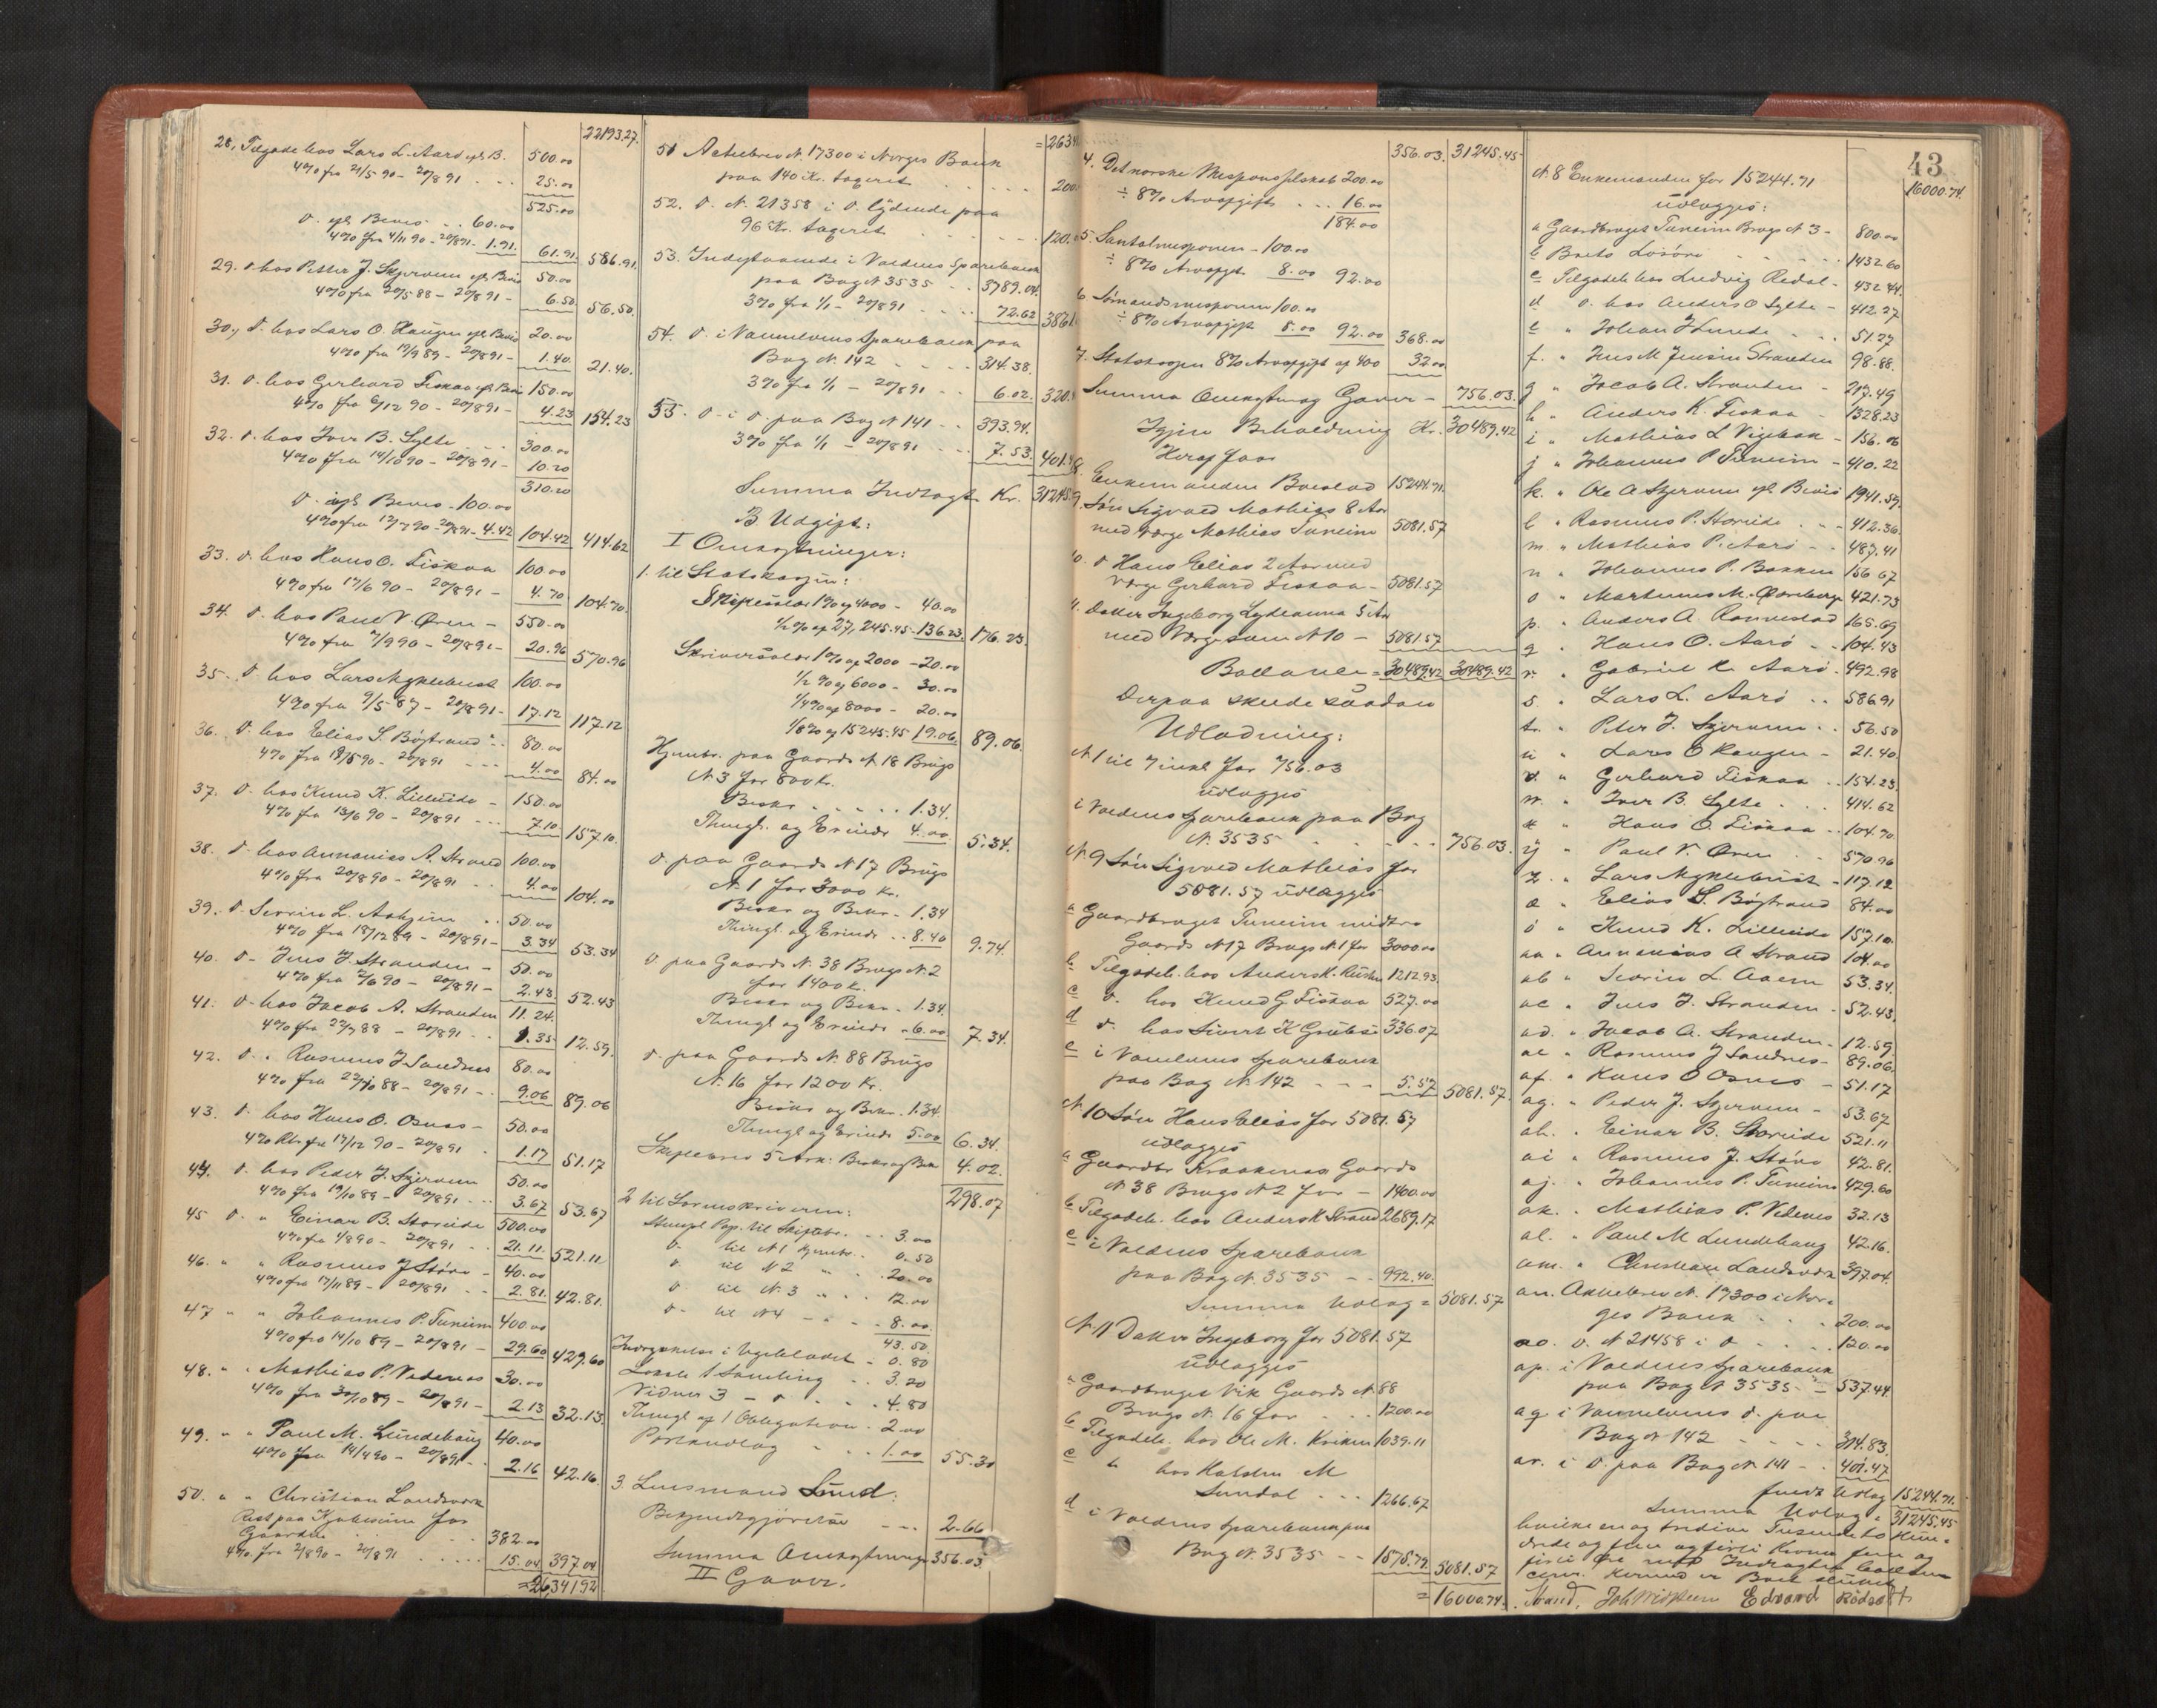 22193.27.
28, Tilgode hos Lars L. Aarø efl B. 500.00
4% fra 21/5 90 - 20/8 91 . . . 25.00
525.00
D. efl Bevis . . 60.00
4% fra 4/11 90 - 20/8 91 - 1.91. 61.91. 586.91
29. D. hos Petter J. Skjervum efl Bevis 50.00
4% fra 20/5 88 - 20/8 91 - 6.50 56.50.
30, D. hos Lars O. Haugen efl Bevis 20.00
4% fra 19/9 89 - 20/8 91 - 1.40. 21.40.
31. D. hos Gerhard Fiskaa efl Bevis 150.00
4% fra 6/12 90 - 20/8 91 - 4.23 154.23
32. D. hos Iver B. Sylte . . . 300.00
4% fra 14/10 90 - 20/8 91 - 10.20
310.20
D. efl Bevis - 100.00
4% fra 12/7 90 - 20/8 91 - 4.42 104.42 414.62
33. D. hos Hans O. Fiskaa 100.00
4% fra 17/6 90 - 20/8 91 - 4.70 104.70.
34. D. hos Paul V. Øren - 550.00
4% fra 7/9 90 - 20/8 91 - 20.96 570.96
35. D. hos Lars Myklebust 100.00
4% fra 9/5 87 - 20/8 91 - 17.12 117.12
36. D. hos Elias S. Bøstrand . . 80.00
4% fra 19/5 90 - 20/8 91 . . . 4.00 84.00
37. D. hos Knud K. Lilleeide - 150.00
4% fra 13/6 90 - 20/8 91 . . . 7.10. 157.10.
38. D. hos Annanias A. Strand 100.00
4% fra 20/8 90 - 20/8 91 . . 4.00 104.00
39. D. Severin L. . . 50.00
4% fra 18/12 89 - 20/8 91 - 3.34 53.34
40. D - Jens J. Stranden - 50.00
4% fra 7/6 90 - 20/8 91 - 2.43. 52.43
41. D - hos Jacob A. Stranden 11.24.
4% fra 29/7 88 - 20/8 91 . . 1.35 12.59.
42. D. " Rasmus J Sandnes 80.00
4% fra 22/10 88 - 20/8 91 - . 9.06 89.06
43. D. hos Hans O. Osnes - 50.00
4% fra 17/12 90 - 20/8 91 . 1.17 51.17
44. D. hos Peder J. Skjervum 50.00
4% fra 19/10 89 - 20/8 91 . . . 3.67 53.67
45 D. " Einar B. Storeide 500.00
4% fra 1/8 90 - 20/8 91 . . 21.11. 521.11
46. " " Rasmus J Støve - 40.00
4% fra 17/11 89 - 20/8 91 . . 2.81. 42.81.
47 " " Johannes P. Tuneim 400.00
4% fra 14/10 89 - 20/8 91 - 29.60 429.60
48. " " Mathias P. Vedenes 30.00
4% fra 30/10 89 - 20/8 91 - 2.13 32.13.
49. " " Paul M. Lundehaug 40.00
4% fra 14/4 90 - 20/8 91 - . 2.16 42.16.
50. " " Christian Landsverk
Rest paa Kjøbesum for
Gaarden . . . 382.00
4% fra 2/8 90 - 20/8 91 . . . . 15.04 397.04
= 26,341.92
= 2634
51 Actiebrev N. 17300 i Norges Bank
paa 140 Kr. taxeret . . . . 200.
52. D. N. 21358 i D. lydende paa
96 Kr. taxeret . . . . 120.
53. Indestaaende i Voldens Sparebank
paa Bog N 3535 . . 3789.04.
3% fra 1/1 - 20/8 91 . . . . 72.62 3861.
54. D. i Vannelvens Sparebank paa
Bog N. 142 . . . . 314.38.
3% fra 1/1 - 20/8 91 . . 6.02. 320.
55. D - i D. paa Bog N 141 . . 393.94.
3% fra 1/1 - 20/8 91 . . . 7.53. 401.
Summa Indtægt Kr. 31245.
B Udgift:
I Omkostninger:
1. til Statskassen:
Skifesalær 1% af 4000 - 40.00
1/2% af 27,245.45 - 136.23. 176.23.
Skriversalær 1% af 2000 - 20.00
1/2% af 6000 - 30.00
1/4% af 8000 - 20.00
1/8% af 15245.45 19.06. 89.06.
Hjembr. paa Gaards N 18 Brugs
N 3 for 800 Kr.
Beskr . . . . 1.34.
Thingl. og Erindr 4.00 5.34.
D. paa Gaards N 17 Brugs
N. 1 for 3000 Kr.
Beskr og Bekr - 1.34
Thingl. og Erindr . . 8.40 9.74.
D paa Gaards N. 38 Brugs N. 2
for 1400 K.
Beskr og Bekr . 1.34.
Thingl og Erindr . 6.00 7.34.
D. paa Gaards N. 88 Brugs
N. 16 for 1200 Kr.
Beskr og Bekr . 1.34.
Thingl og Erindr 5.00 6.34.
Skiftebrev 5 Ark: Beskr og Bekr 4.02.
298.07
2 til Sorenskriveren:
Stempl. Pap. til Skiftebr. . . 3.00
D. til N 1 hjembr. . . 0.50
D. til N 2 " . . 20.00
D. til N. 3 " . . 12.00
D. til N 4 - . . 8.00.
43.50.
Indrykkelse i Ugebladet - 0.80
Lokale 1 Samling . . 3.20
Vidner 3 - D . . . 4.80
Thingl af 1 Obligation - 2.00
Portoudlæg . . . 1.00 55.30
3 Lensmand Lund:
Bekjendtgjørelse . . . 2.66
Summa Omkostninger 356.03
II Gaver.
356.03. 31245.45
4. Det norske Missionsselskab 200.00
÷ 8% Arveafgift . . . 16.00
184.00
5. Santalmissionen - 100.00
÷ 8% Arveafgift 8.00 92.00
6. Sømandsmissionen 100.00
÷ 8% Arveafgift 8.00 92.00 368.00
7. Statskassen 8% Arveafgift af 400 32.00
Summa Omkostn og Gaver - 756.03.
Igjen Beholdning Kr. 30489.42
Heraf faar
Enkemanden Boeslod 15244.71.
9. Søn Sigvald Mathias 8 Aar
med Værge Mathias Tuneim 5081.57
10. D Hans Elias 2 Aar med
Værge Gerhard Fiskaa - 5081.57
11. Datter Ingeborg Lydeanna 5 Aar
med Værge som N 10 - 5081.57
Ballance = 30489.42 30489.42
Derpaa skede saadan
Udlodning:
N 1 til 7 inkl for 756.03
udlægges
i Voldens Sparebank paa Bog
N. 3535 . . . . . 756.03.
N. 9 Søn Sigvald Mathias for
5081.57 udlægges
a Gaardbruget Tuneim midtre
Gaards N 17 Brugs N 1 for 3000.00
b Tilgodeh. hos Anders K. 1212.93
c D. hos Knud G Fiskaa 527.00
d D. hos Sivert K 336.07
e i Vannelvens Sparebank
paa Bog N. 142 - - - 5.57 5081.57.
N. 10 Søn Hans Elias for 5081.57
udlægges
a Gaardbr Kraakenes Gaards
N 38 Brugs N 2 for - 1400.00
b Tilgodeh. hos Anders K Strand 2689.17
c i Voldens Sparebank
paa Bog N. 3535 - - 992.40.
Summa Udlæg = 5081.57
N. 11 Datter Ingeborg for 5081.57
udlægges
a Gaardbruget Vik Gaards N. 88
Brugs N. 16 for . . . 1200.00
b Tilgodeh. hos Ole M. 1039.11
c " hos M
Sundal . . . 1266.67
d i Voldens Sparebank paa
Bog N. 3535 - - 1575.79 5081.57
= 16000.74.
43
16000.74.
N. 8 Enkemanden for 15244.71
udlægges:
a Gaardbruget Tuneim Brugs N 3 - 800.00
b Boets Løsøre . . . . . 1432.60
c Tilgodeh hos Ludvig - 432.44.
d D. hos Anders O Sylte - 412.27
e " Johan - . . 51.27
f. " Jens M Jensen Stranden 98.88.
g " Jacob A. Stranden - 217.49
h " Anders K. Fiskaa - 1328.23
i " Mathias L - 156.06
j " Johannes P Tuneim - 410.22
k. " Ole A Skjervum efl Bevis 1941.59
l " Rasmus P. Storeide . - - 412.36
m " Mathias P. Aarø - - 487.41
n " Johannes P. Bakken 156.67
o " Martinus M. 421.73
p. " Anders A. 165.69
q " Hans O. Aarø . . 104.43
r. " Gabriel K. Aarø . 492.98
s. " Lars L. Aarø . . 586.91
t. " Peter J. Skjervum . . 56.50
u " Lars O Haugen - 21.40
v. " Gerhard Fiskaa . . 154.23
w. " Iver B. Sylte . . . 414.62
x " Hans O. Fiskaa . . 104.70
y " Paul V. Øren . . 570.96
z. " Lars Myklebust - 117.12
æ " Elias S. Bøstrand 84.00
ø " Knud K. Lilleeide 157.10.
aa " Annanias A Strand 104.00
ab " Severin L 53.34.
ac " Jens J. Stranden - 52.43.
ad. " Jacob A. Stranden - 12.59
ae " Rasmus J Sandnes - 89.06.
af. " Hans O Osnes - 51.17
ag. " Peder J. Skjervum - 53.67
ah. " Einar B. Storeide 521.11
ai " Rasmus J. Støve 42.81.
aj. " Johannes P. Tuneim 429.60
ak. " Mathias P. Vedenes 32.13
al. " Paul M Lundehaug 42.16.
am. " Christian Landsverk 397.04.
an. Aktiebrev N. 17300 i Nor=
ges Bank . . . 200.00
ao. D. N 21458 i D . . . . 120.00
ap. i Voldens Sparebank
paa Bog N 3535 - - 537.44
aq. i Vannelvens D. paa
Bog N 142 . . . . 314.83.
ar. i D. paa Bog N. 141 - . 401.47
fuldt Udlæg 15244.71.
Summa Udlæg = 31245.45
hvilke en og tredive Tusende to Hun=
drede og fem og firti Kroner fem og
firti Øre med Indtægten ballan
cerer. Hermed er Boet sluttet
Strand, Edvard Rødseth